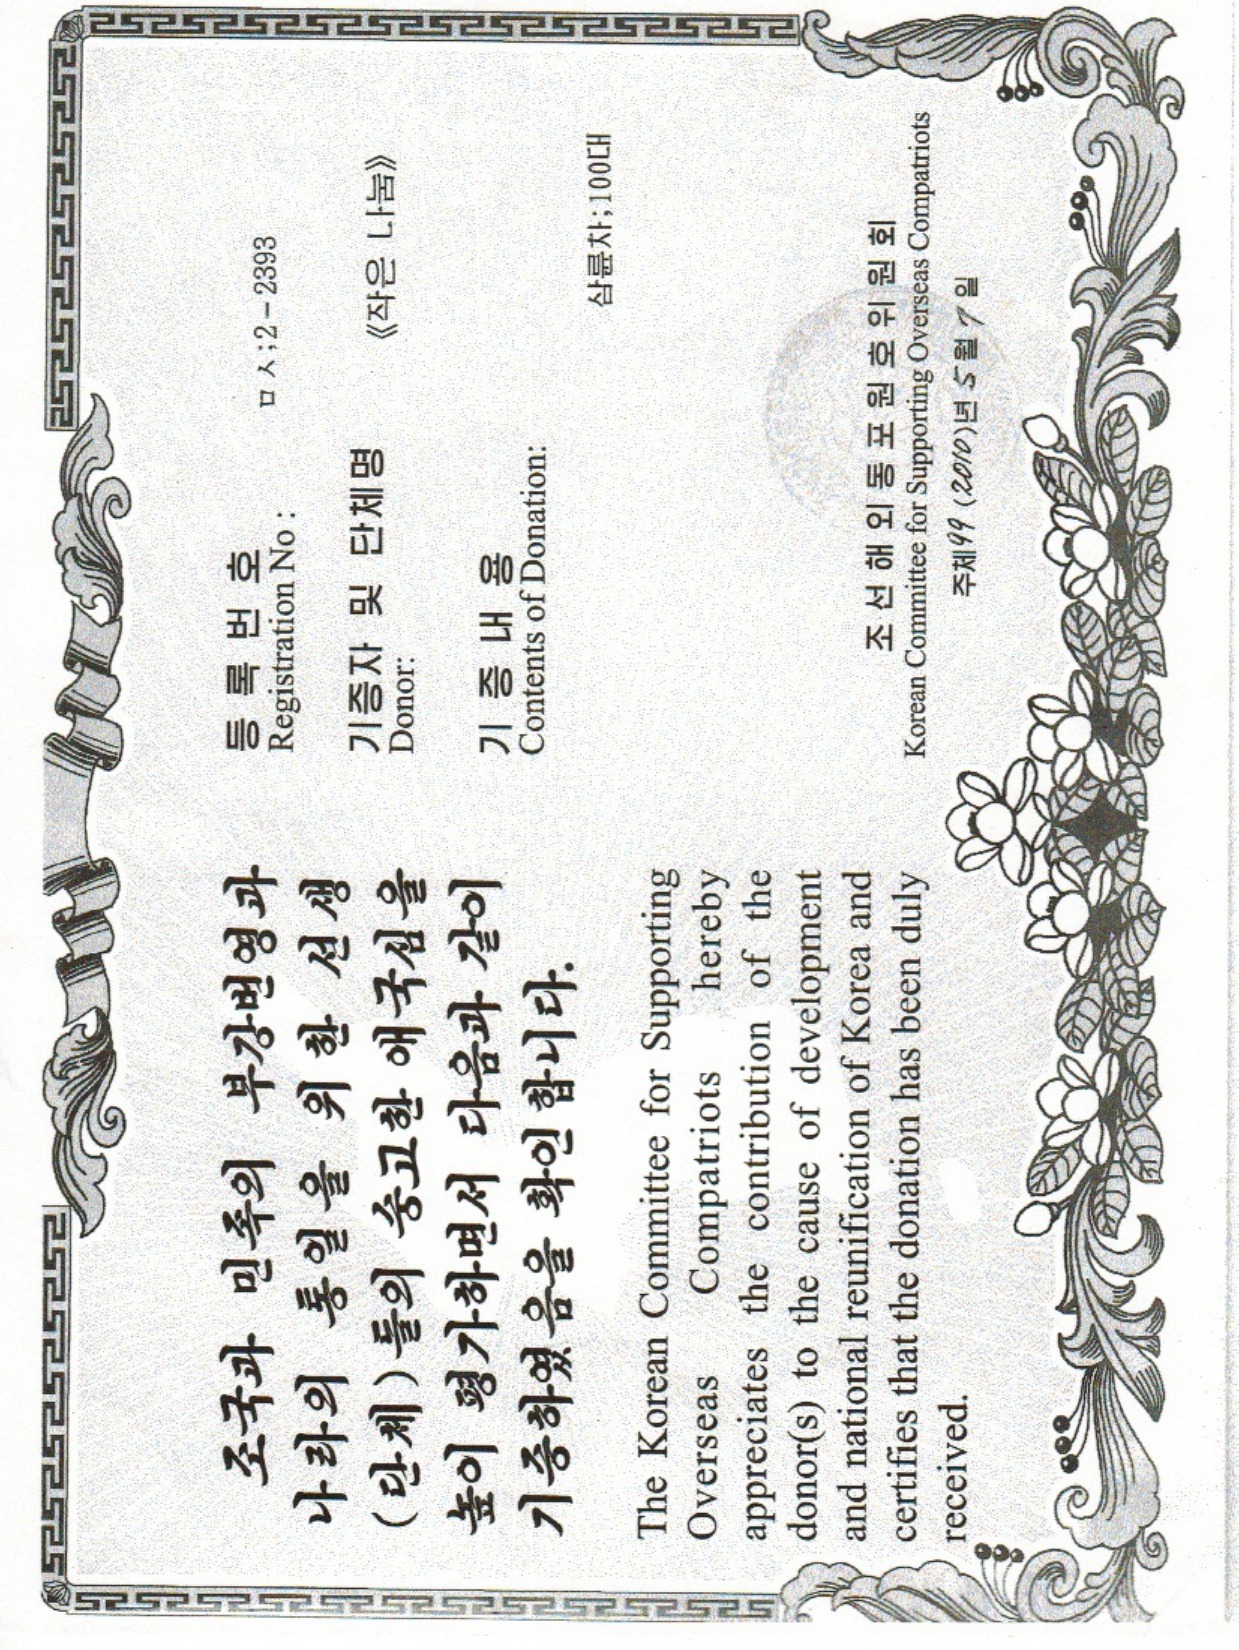 조국과 민족의 부강번영과
나라의 통일을 위한 선생
(단체)들의 숭고한 애국심을
높이 평가하면서 다음과 같이
기증하였음을 확인합니다.
The Korean Committee for Supporting
Overseas Compatriots hereby
appreciates the contribution of the
donor(s) to the cause of development
and national reunification of Korea and
certifies that the donation has been duly
received.
등 록 번 호
Registration No :
ㅁㅅ;2-2393
기증자 및 단체명
Donor:
《작은 나눔》
기 증 내 용
Contents of Donation:
삼륜차;100대
조선해외동포원호위원회
Korean Committee for Supporting Overseas Compatriots
주체99(2010)년 5월 7일